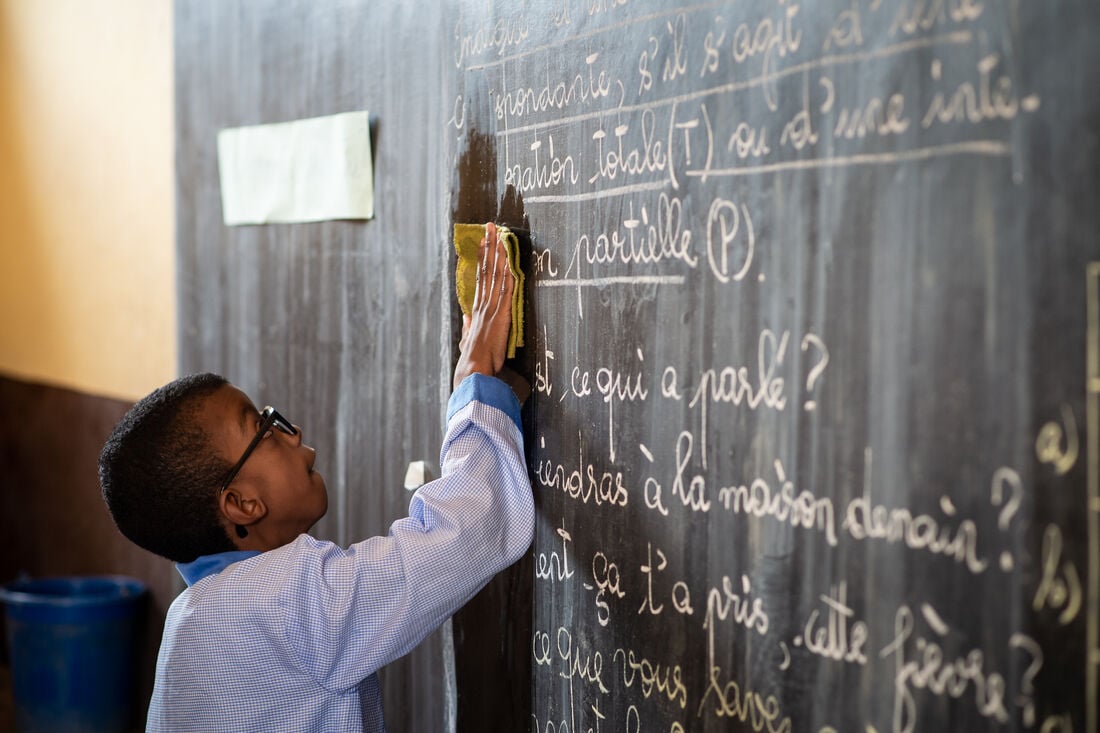 Indique si une
spondante, s'il s'agit d'une
gation totale (T) ou d'une inte-
on partielle (P).
st ce qui a parlé ?
iendras à la maison demain ?
ent ça t'a pris, cette fièvre ?
ce que vous save
a)
b)